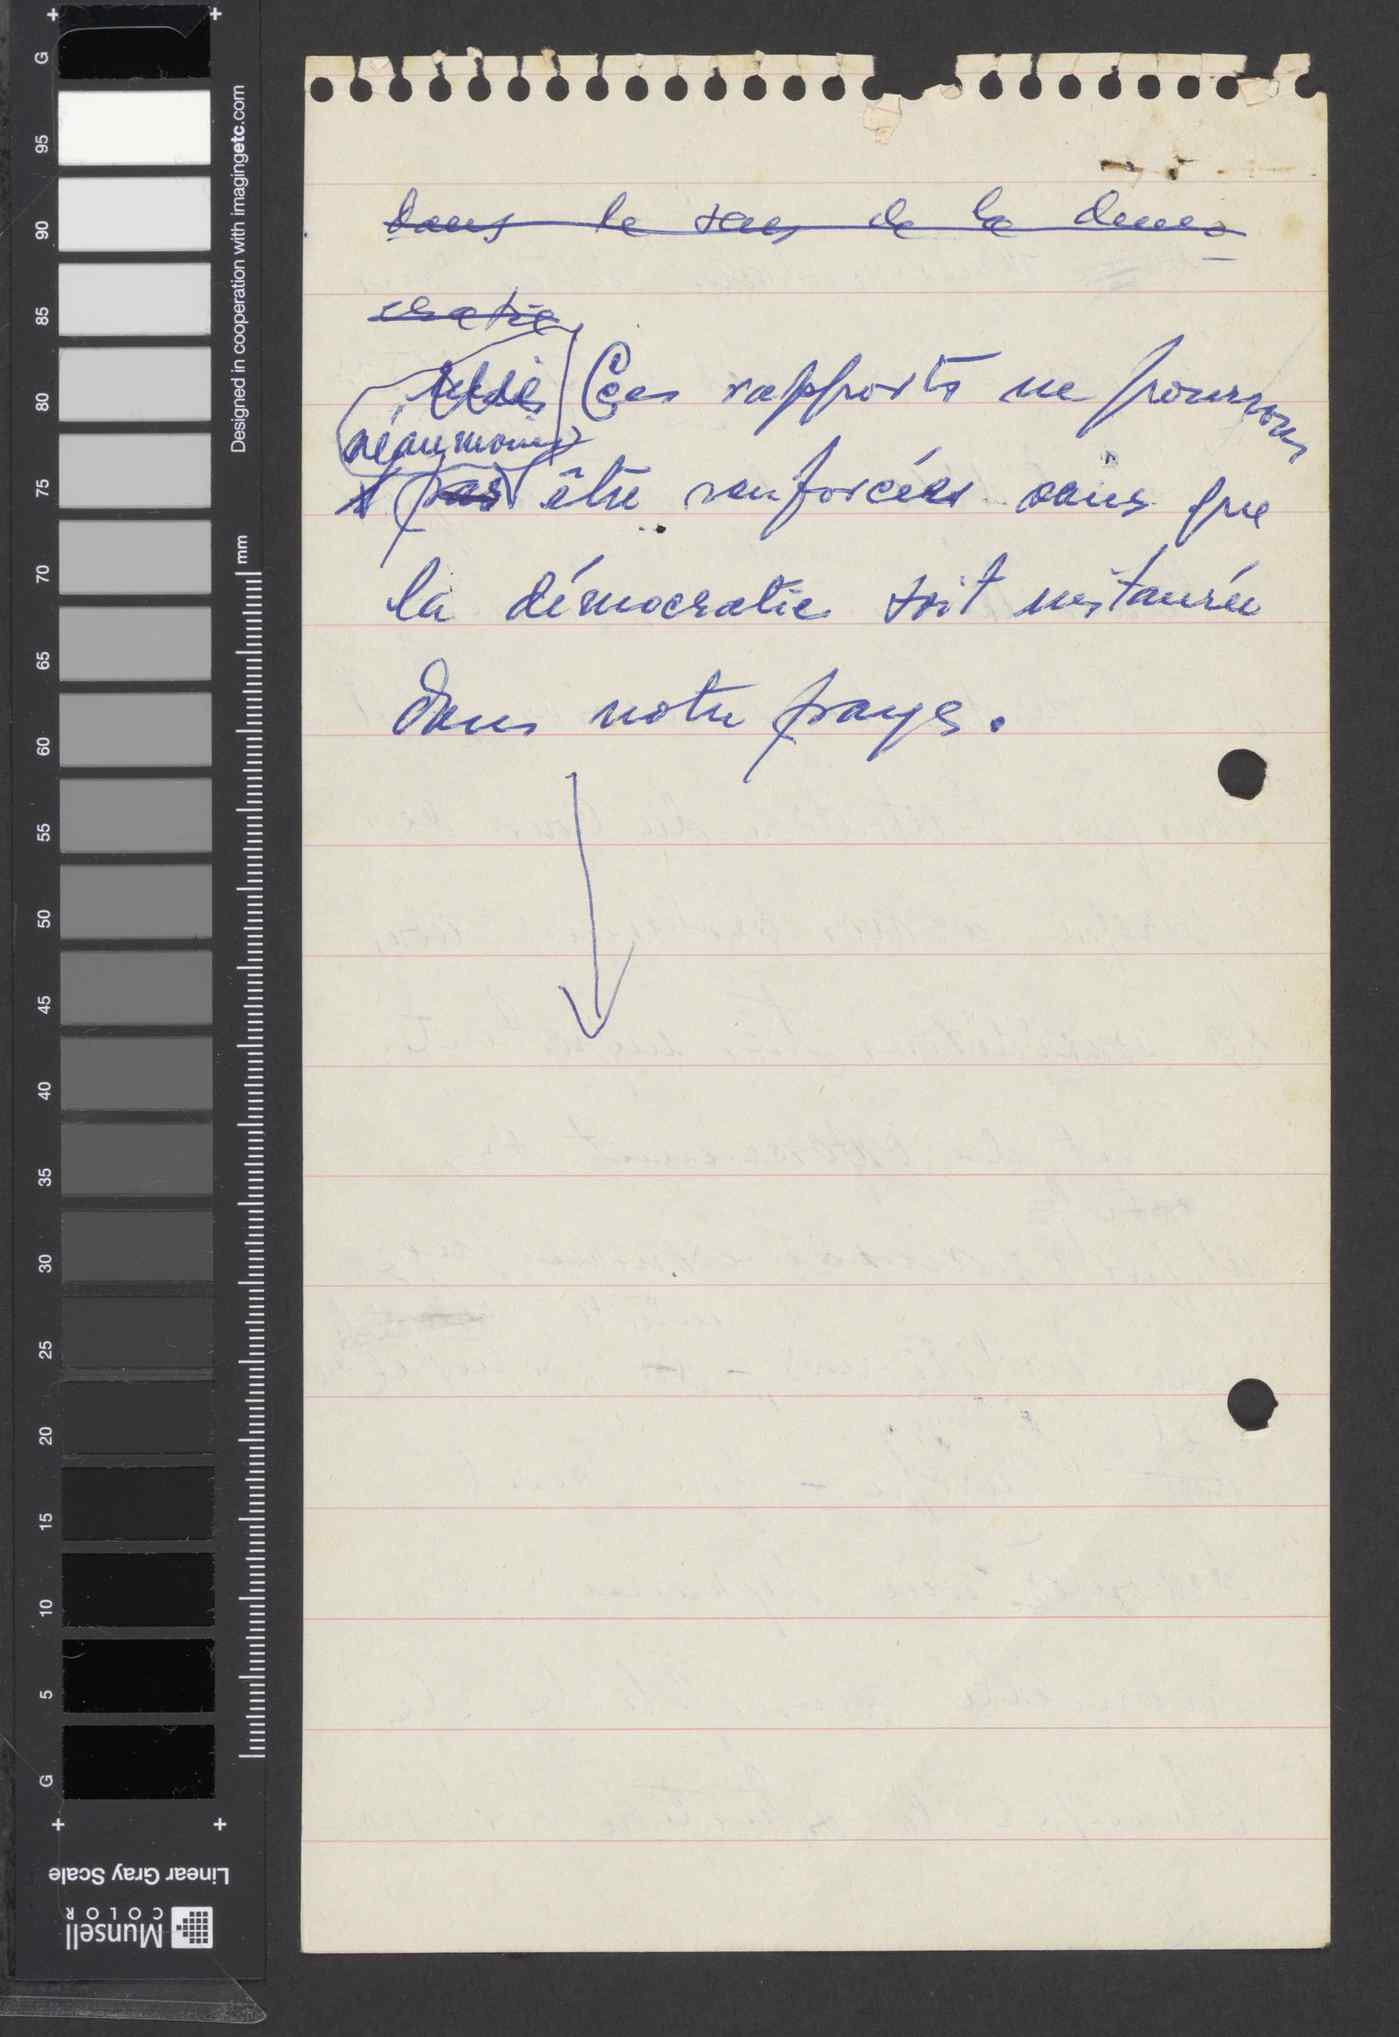 dans le sens de la démo
cratie
Ces rapports ne pourrons
néanmoins
pas être renforcées sans que
la démocratie soit instaurée
dans notre pays.
G
95
90
85
80
75
70
65
60
55
50
45
40
35
30
25
20
15
10
5
G
Designed in cooperation with imagingetc.com
mm
Linear Gray Scale
Munsell
COLOR